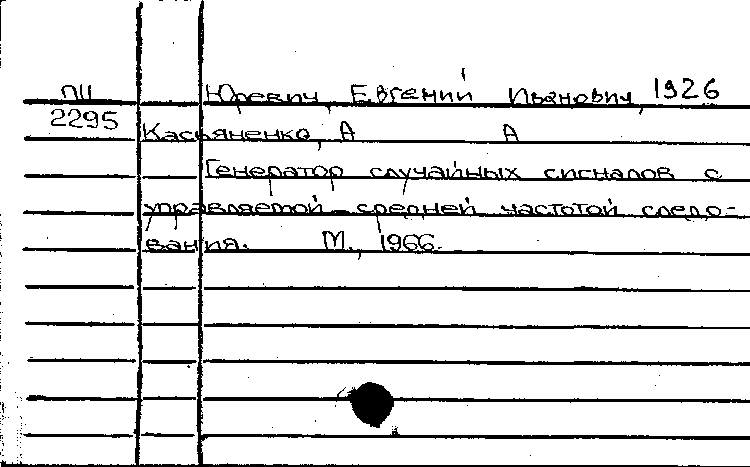 ПII Юревич, Евгений Иванович, 1926
2295 Касьяненко, А А
Генератор случайных сигналов с
управляемой средней частотой следо-
вания. М., 1966.